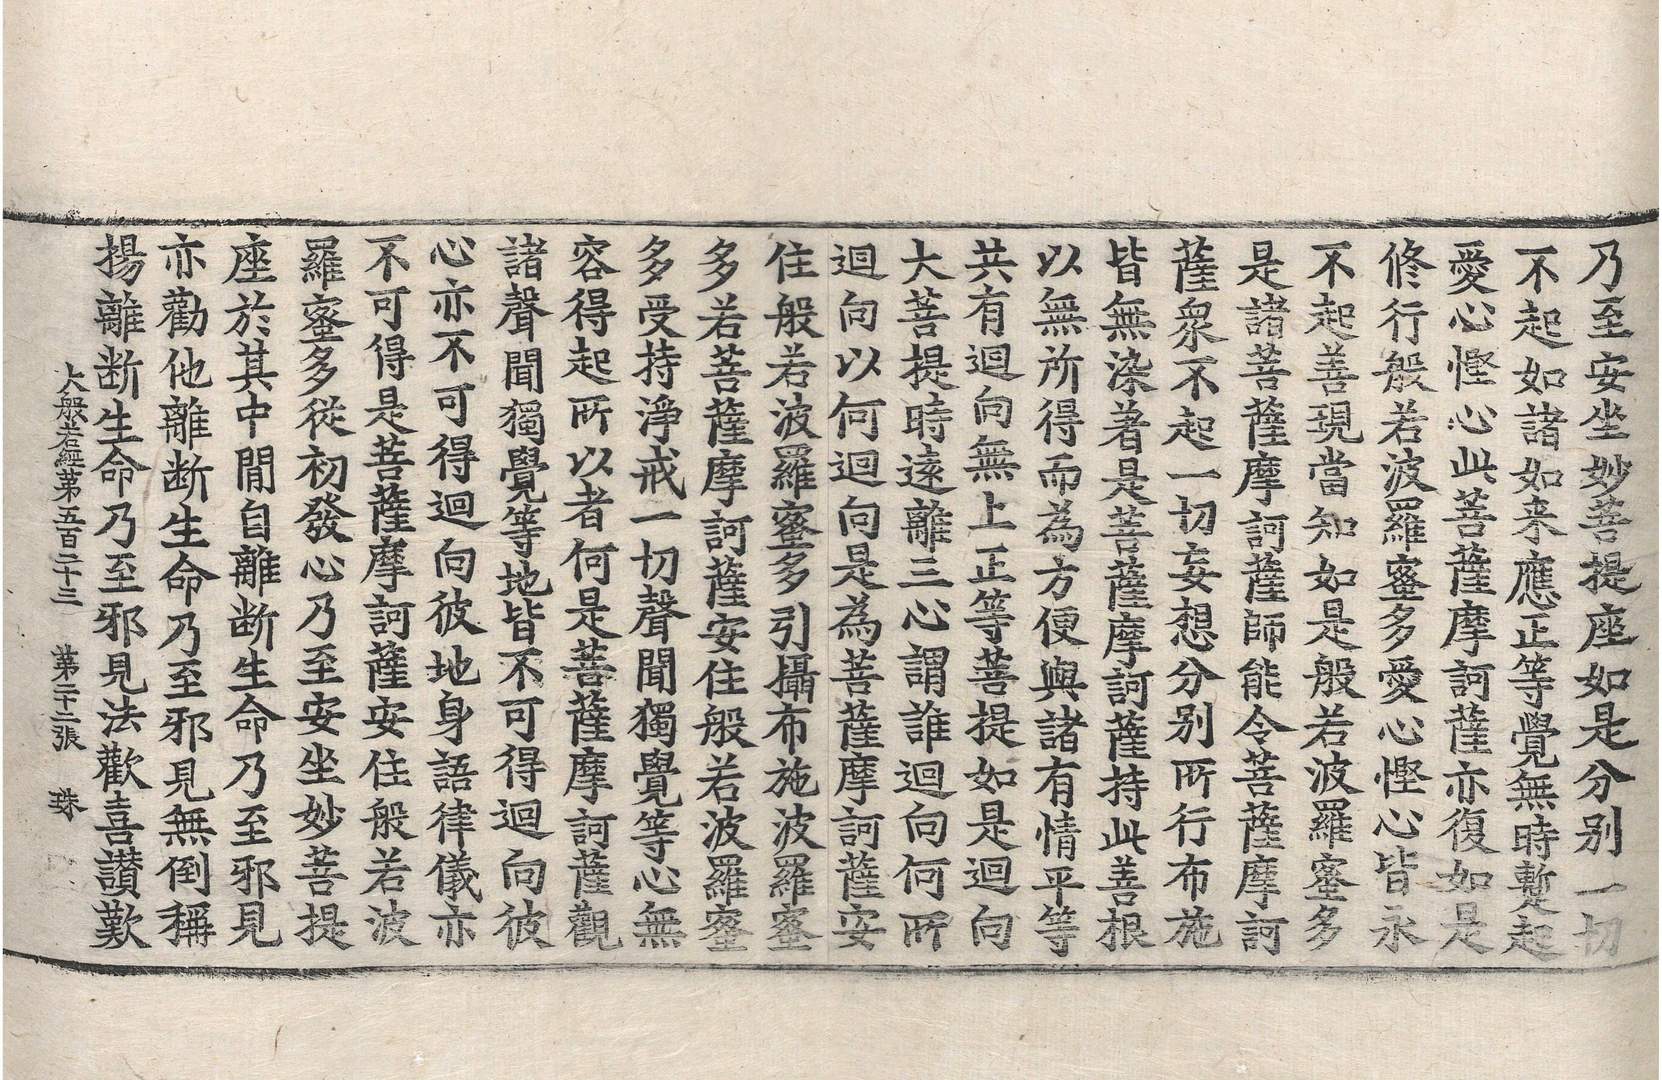 乃至安坐妙菩提座如是分別一切
不起如諸如来應正等覺無時蹔起
愛心慳心此菩薩摩訶薩亦復如是
修行般若波羅蜜多愛心慳心皆永
不起善現當知如是般若波羅蜜多
是諸菩薩摩訶薩師能令菩薩摩訶
薩衆不起一切妄想分别所行布施
皆無染著是菩薩摩訶薩持此善根
以無所得而為方便與諸有情平等
共有迴向無上正等菩提如是迴向
大菩提時遠離三心謂誰迴向何所
迴向以何迴向是為菩薩摩訶薩安
住般若波羅蜜多引攝布施波羅蜜
多若菩薩摩訶薩安住般若波羅蜜
多受持淨戒一切聲聞獨覺等心無
容得起所以者何是菩薩摩訶薩觀
諸聲聞獨覺等地皆不可得迴向彼
心亦不可得迴向彼地身語律儀亦
不可得是菩薩摩訶薩安住般若波
羅蜜多從初發心乃至安坐妙菩提
座於其中閒自離断生命乃至邪見
亦勸他離断生命乃至邪見無倒稱
揚離断生命乃至邪見法歡喜讃歎
大般若經第五百二十三 第二十二張 珠